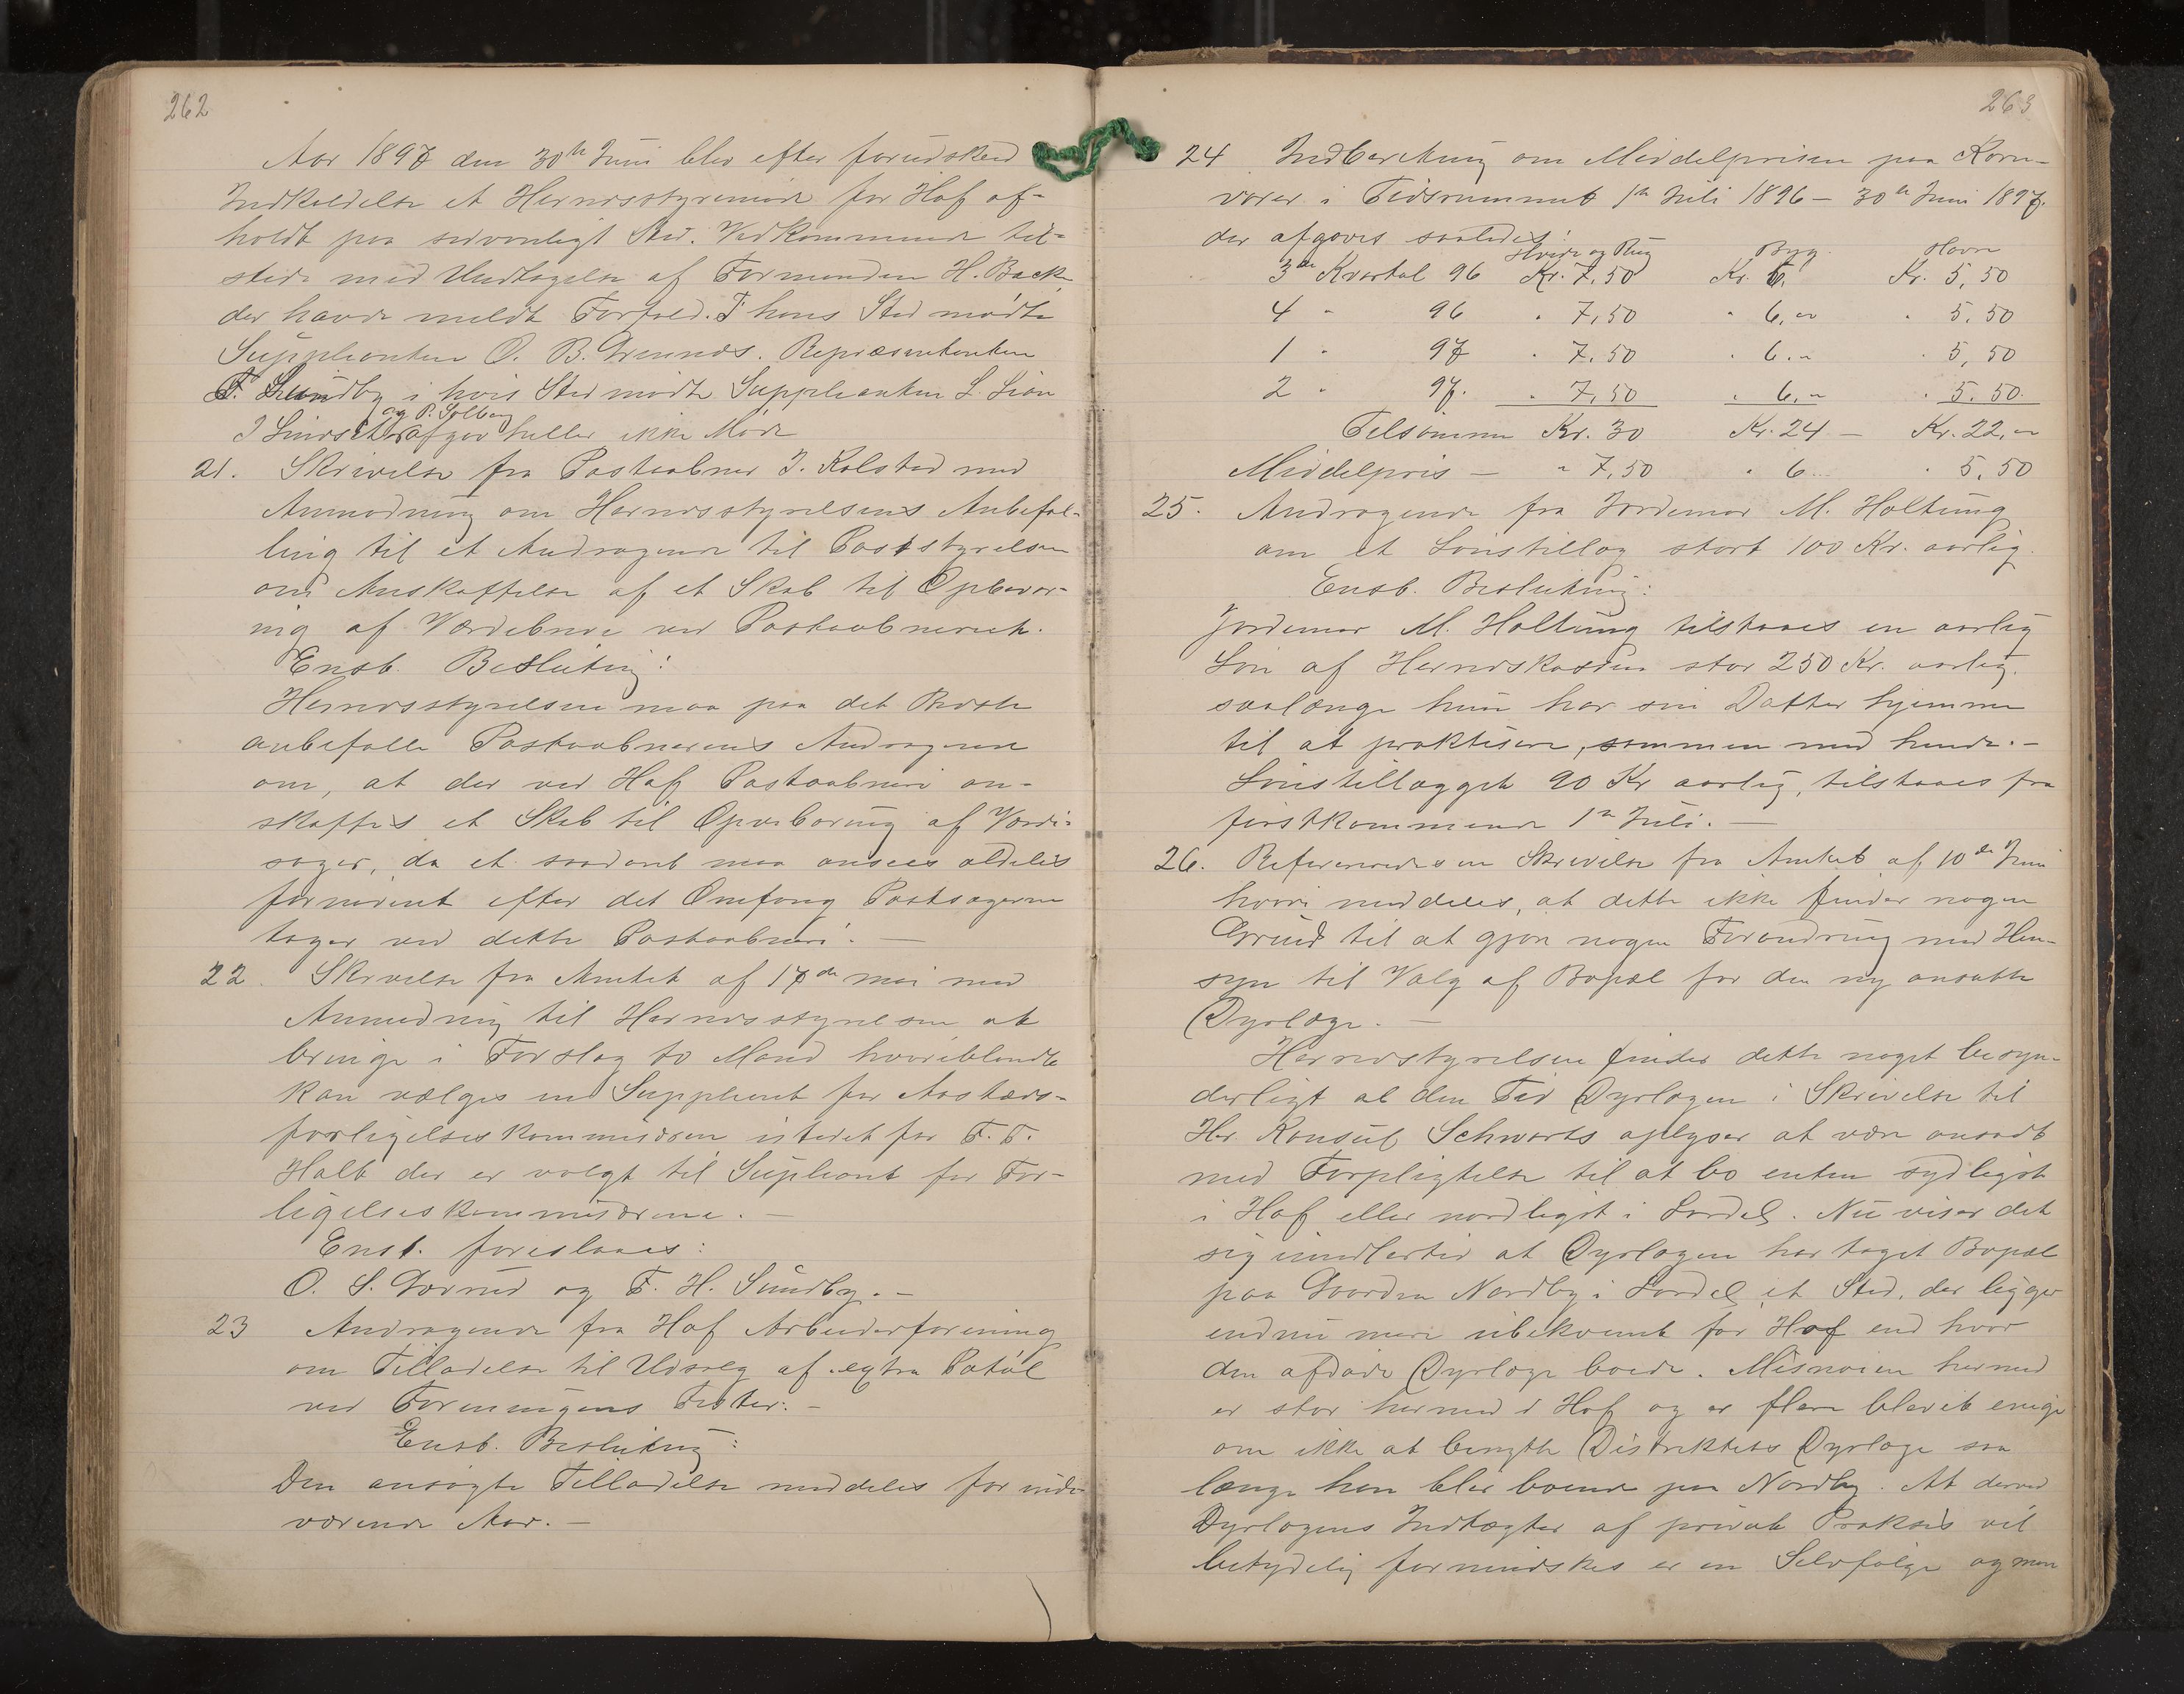 262
Aar 1897 den 30te Juni blev efter forudskend
Indkaldelse et Herredsstyremøde for Hof af-
holdt paa sedvanligt Sted. Vedkommende til-
stede med Undtagelse af Formanden H. Back
der havde meldt Forfald. I hans Sted mødte
Suppleanten O. B. Repræsentanten
F. Sundby i hvis Sted mødte Suppleanten L. Liøn
og P. Solberg
J afgav heller ikke Møde
21. Skrivelse fra Postaabner J. Kolstad med
Anmodning om Herredsstyrelsens Anbefal-
ling til et Andragende til Poststyrelsen
om Anskaffelse af et Skab til Opbevar-
ing af Værdibreve ved Postaabneriet.
Ensb. Beslutning:
Herredsstyrelsen maa paa det Bedste
anbefalle Postaabnerens Andragende
om, at der ved Hof Postaabneri an-
skaffes et Skab til Opvebaring af Værdi-
sager, da et saadant maa ansees aldeles
fornødent efter det Omfang Postsagerne
tager ved dette Postaabneri. —
22. Skrivelse fra Amtet af 17de mai med
Anmodning til Herredsstyrelsen at
bringe i Forslag to Mænd hvoriblandt
kan vælges en Suppleant for Aastæds-
forligelseskommisæren istedet for F. F.
Holt der er valgt til Supleant for For-
ligelseskommisærene. —
Enst. foreslaaes:
O. S. Gorrud og F. H. Sundby. —
23 Andragende fra Hof Arbeiderforening
om Tilladelse til Udsalg af extra Patøl
ved Foreningens Fester. —
Ensb. Beslutning:
Den ansøgte Tilladelse meddeles for inde-
værende Aar. —
263
24 Indberetning om Middelprisen paa Korn-
varer i Tidsrummet 1te Juli 1896 – 30te Juni 1897.
der afgaves saaledes:
Hvede og Rug Byg. Havre
3die Kvartal 96 Kr. 7,50 Kr. 6. Kr. 5,50
4 " 96 " 7,50 " 6,00 " 5.50
1 " 97 " 7.50 " 6.00 " 5,50
2 " 97. " 7,50 " 6,00 " 5.50.
Tilsamme Kr. 30 Kr. 24 — Kr. 22,00
Middelpris — " 7,50 " 6... " 5,50
25. Andragende fra Jordemor M. Holtung
om et Lønstillæg stort 100 Kr. aarlig.
Ensb. Beslutning:
Jordemor M. Holtung tilstaaes en aarlig
Løn af Herredskassen stor 250 Kr. aarlig.
saalænge hun har sin Datter hjemme
til at praktisere, sammen med hende. —
Lønstillægget 90 Kr aarlig, tilstaaes fra
førstkommende 1te Juli. —
26. Refereredes en Skrivelse fra Amtet af 10de Juni
hvori meddeles, at dette ikke finder nogen
Grund til at gjøre nogen Forandring med Hen-
syn til Valg af Bopæl for den ny ansatte
Dyrlæge. —
Herredstyrelsen finder dette noget besyn-
derligt al den Tid Dyrlægen i Skrivelse til
Hr Konsul Schwartz oplyser at være ansadt
med Forpligtelse til at bo enten sydligst
i Hof eller nordligst i Lardal. Nu viser det
sig imidlertid at Dyrlægen har taget Bopæl
paa Gaarden Nordby i Lardal, et Sted, der ligger
endnu mere ubekvemt for Hof end hvor
den afdøde Dyrlæge boede. Misnøien hermed
er stor hermed i Hof og er flere blevet enige
om ikke at benytte Distriktets Dyrlæge saa
længe han blir boende paa Nordby. At derved
Dyrlægens Indtægter af privat Praksis vil
betydelig formindskes er en Selvfølge og man